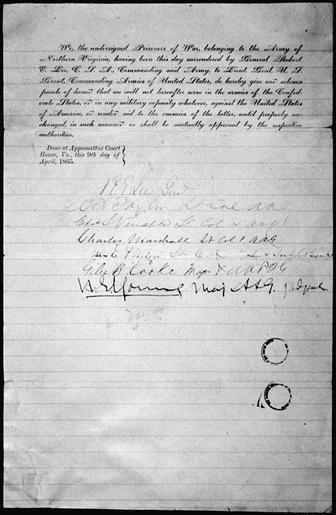 We, the undersigned Prisoners of War, belonging to the Army of
Northern Virginia, having been this day surrendered by General Robert
E. Lee, C. S. A., Commanding said Army, to Lieut. Genl. U. S.
Grant, Commanding Armies of United States, do hereby give our solemn
parole of honor that we will not hereafter serve in the armies of the Confed-
erate States, or in any military capacity whatever, against the United States
of America, or render aid to the enemies of the latter, until properly ex-
changed, in such manner as shall be mutually approved by the respective
authorities.
Done at Appomattox Court
House, Va., this 9th day of
April, 1865.
R E Lee Genl
W H Taylor Lt Col AAG
Chs S Venable Lt Col & AAG
Charles Marshall Lt Col & AAG
Lt Col
Giles B Cooke Maj & AAIG
H E Young Maj AAG